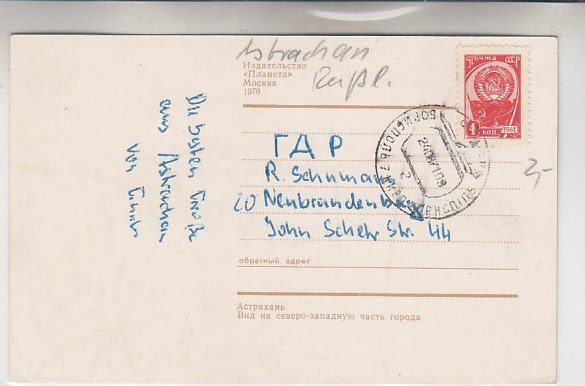 Astrachan
Rußl.
Издательство
«Планета»
Москва
1970
Почта СССР
4 коп. 1961
БОРИСПОЛЬ
2
2,-
Die besten Grüße
aus Astrachan
von
ГДР
R. Schumann
20 Neubrandenb
John Schehr Str. 44
обратный адрес
Астрахань.
Вид на северо-западную часть города